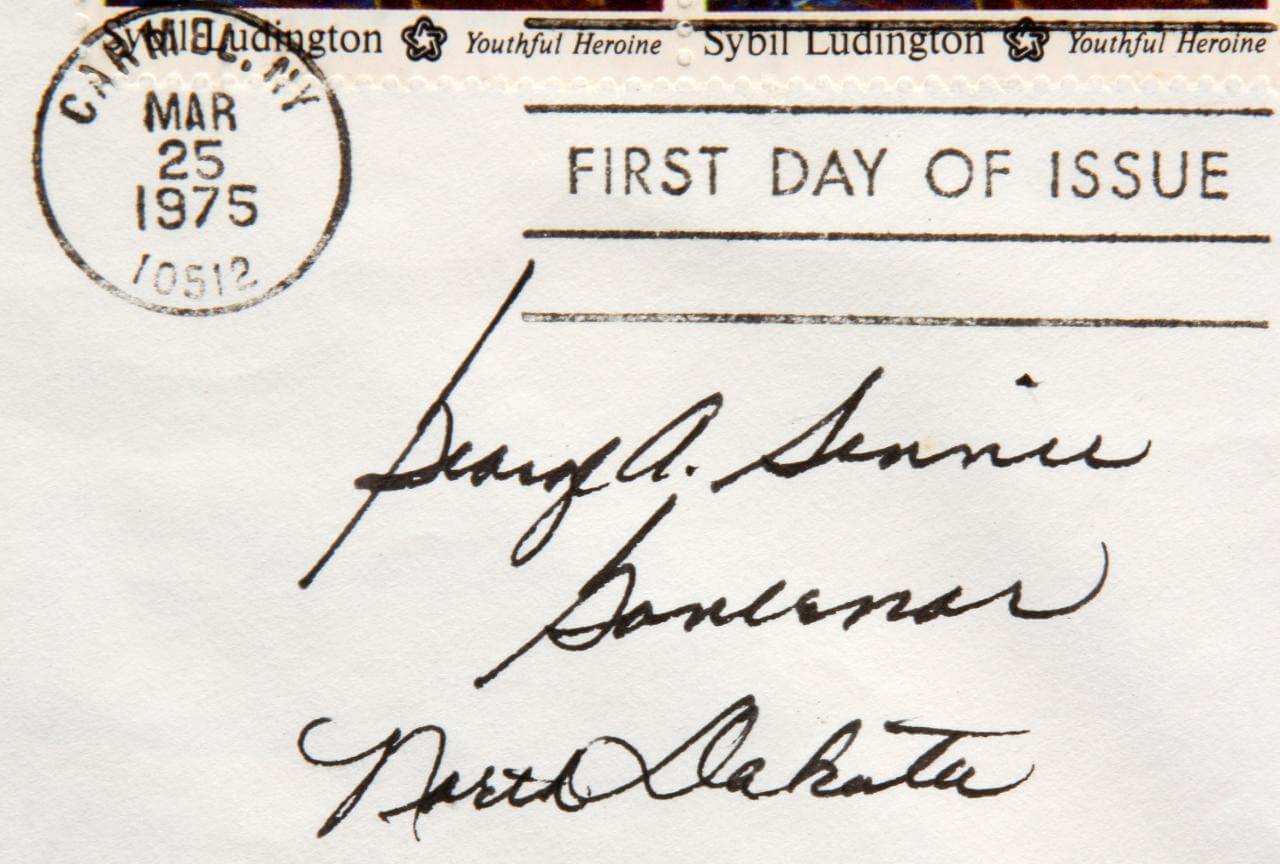 Sybil Ludington Youthful Heroine Sybil Ludington Youthful Heroine
CARMEL, NY
MAR
25
1975
10512
FIRST DAY OF ISSUE
George A. Sinner
Governor
North Dakota